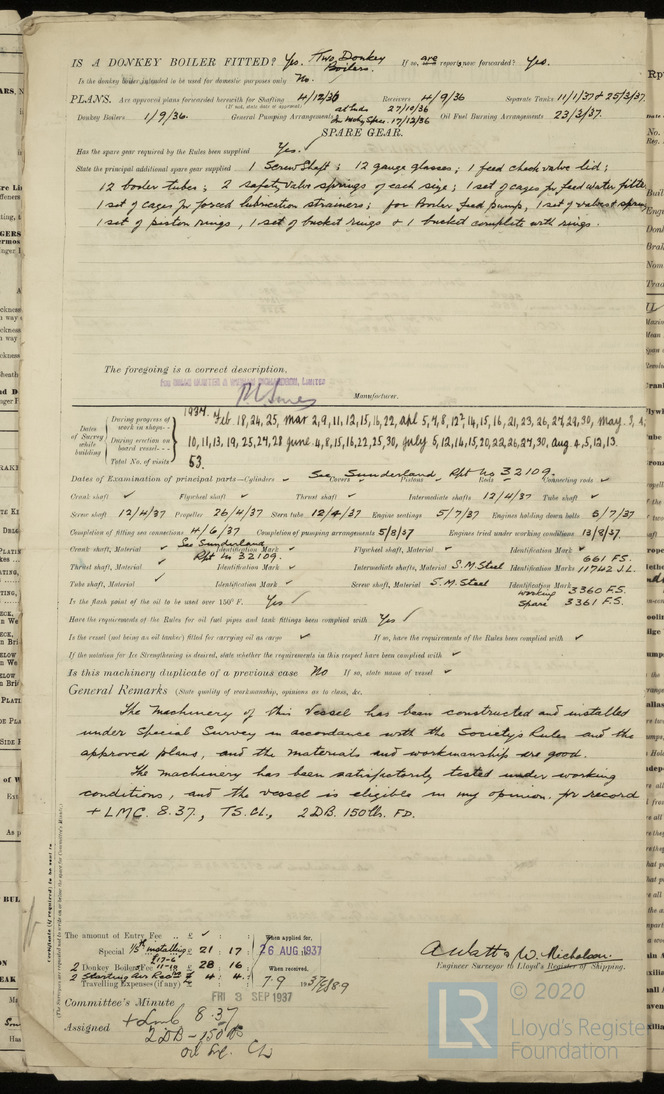 IS A DONKEY BOILER FITTED? Yes. Two Donkey Boilers. If so, are reports now forwarded? Yes.
Is the donkey boiler intended to be used for domestic purposes only No.
PLANS. Are approved plans forwarded herewith for Shafting 4/12/36 Receivers 4/9/36 Separate Tanks 11/1/37 & 25/3/37.
(If not, state date of approval)
Donkey Boilers 1/9/36. General Pumping Arrangements 27/10/36 17/12/36 Oil Fuel Burning Arrangements 23/3/37.
SPARE GEAR.
Has the spare gear required by the Rules been supplied Yes. ✓
State the principal additional spare gear supplied 1 Screw Shaft; 12 gauge glasses; 1 feed check valve lid;
12 boiler tubes; 2 safety valve springs of each size; 1 set of cages for feed water
1 set of cages for forced lubrication strainers; for Boiler feed pump, 1 set of valves &
1 set of piston rings, 1 set of bucket rings & 1 bucket complete with rings.
The foregoing is a correct description,
Manufacturer.
Dates of Survey while building
During progress of work in shops - - 1937. Feb 18, 24, 25, Mar 2, 9, 11, 12, 15, 16, 22, apl 5, 7, 8, 12, 14, 15, 16, 21, 23, 26, 27, 29, 30, May. 3, 4;
During erection on board vessel - - - 10, 11, 13, 19, 25, 27, 28 June 4, 8, 15, 16, 22, 25, 30, July 5, 12, 14, 15, 20, 22, 26, 27, 30, Aug. 4, 5, 12, 13.
Total No. of visits 53.
Dates of Examination of principal parts—Cylinders ✓ Covers ✓ Pistons Rods Connecting rods ✓
See Sunderland Rpt No 32109.
Crank shaft ✓ Flywheel shaft ✓ Thrust shaft ✓ Intermediate shafts 12/4/37 Tube shaft ✓
Screw shaft 12/4/37 Propeller 26/4/37 Stern tube 12/4/37 Engine seatings 5/7/37 Engines holding down bolts 6/7/37
Completion of fitting sea connections 4/6/37 Completion of pumping arrangements 5/8/37 Engines tried under working conditions 13/8/37.
Crank shaft, Material ✓ See Sunderland Rpt No 32109. Identification Mark ✓ Flywheel shaft, Material ✓ Identification Mark ✓
Thrust shaft, Material ✓ Identification Mark ✓ Intermediate shafts, Material S.M. Steel Identification Marks 661 F.S. 11742 J.L.
Tube shaft, Material ✓ Identification Mark ✓ Screw shaft, Material S.M. Steel Identification Mark working 3360 F.S. Spare 3361 F.S.
Is the flash point of the oil to be used over 150° F. Yes ✓
Have the requirements of the Rules for oil fuel pipes and tank fittings been complied with Yes ✓
Is the vessel (not being an oil tanker) fitted for carrying oil as cargo ✓ If so, have the requirements of the Rules been complied with ✓
If the notation for Ice Strengthening is desired, state whether the requirements in this respect have been complied with ✓
Is this machinery duplicate of a previous case No If so, state name of vessel ✓
General Remarks (State quality of workmanship, opinions as to class, &c.
The machinery of this Vessel has been constructed and installed
under Special Survey in accordance with the Society's Rules and the
approved plans, and the materials and workmanship are good.
The machinery has been satisfactorily tested under working
conditions, and the vessel is eligible in my opinion for record
+ LMC. 8.37., TS. CL., 2 DB. 150 lb. FD.
The amount of Entry Fee .. £ ✓ : :
Special 1/5th installing £ 21 : 17 :
2 Donkey Boilers Fee £ 28 : 16
2 Starting Air £ 4 : 4 :
Travelling Expenses (if any) £ : :
When applied for, 26 AUG 1937
When received, 7.9 1937
A Watt & W. Nicholson.
Engineer Surveyor to Lloyd's Register of Shipping.
Committee's Minute FRI 3 SEP 1937
Assigned + LMC 8.37
2 DB - 150 lb
Oil Eng. CL
© 2020
LR Lloyd's Register
Foundation